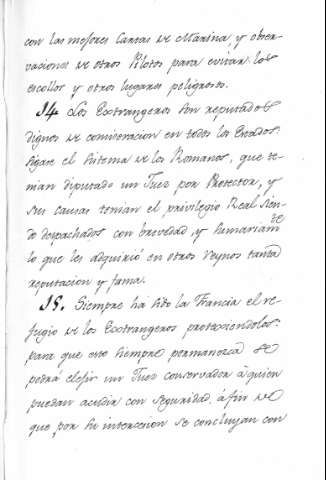 con las mejores Cartas de Marina, y obser-
vaciones de otros Pilotos para evitar los
escollos y otros lugares peligrosos.
14. Los Extrangeros son reputados
dignos de comiseracion en todos los Estados:
sigase el Sistema de los Romanos, que te-
nian diputado un Juez por Protector, y
sus causas tenian el privilegio Real sien-
do despachados con brevedad y humanidam.te
lo que les adquirió en otros Reynos tanta
reputacion y fama.
15. Siempre ha sido la Francia el re-
fugio de los Extrangeros protexiendolos:
para que esto siempre permanezca se
podrá elejir un Juez conservador à quien
puedan acudir con seguridad, à fin de
que por su intercecion se concluyan con